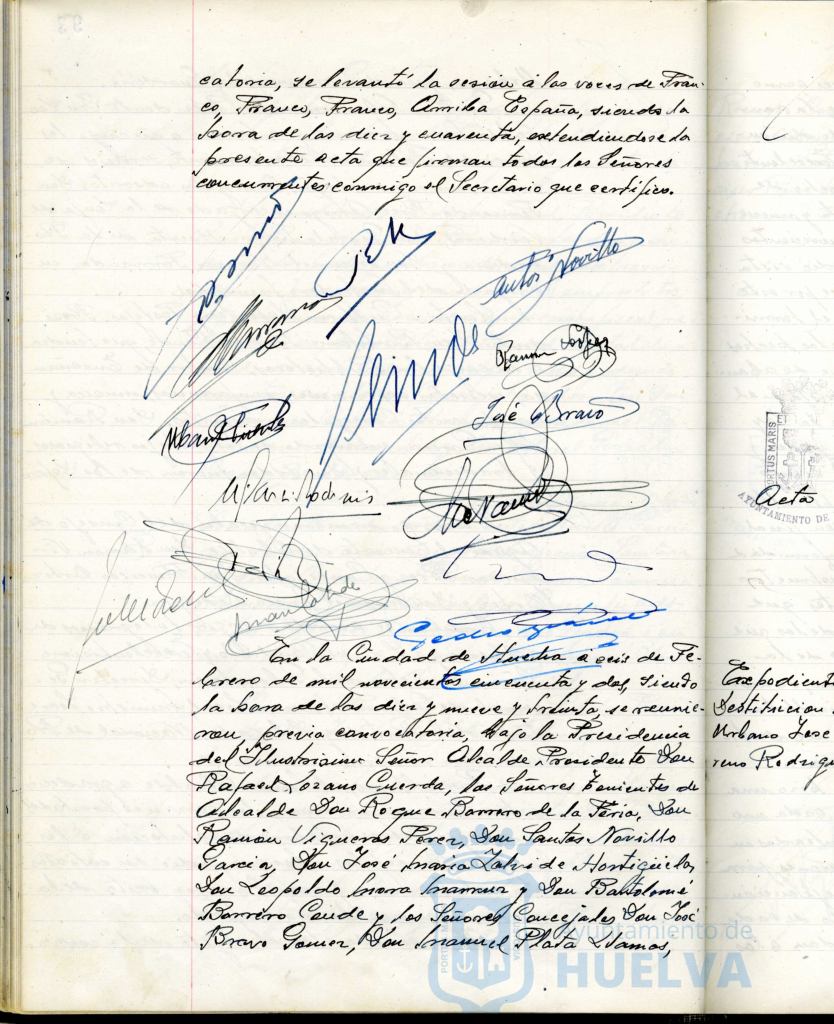 catoria, se levantó la sesion á las voces de Fran-
co, Franco, Franco, Arriba España, siendo la
hora de las diez y cuarenta, extendiendose la
presente acta que firman todos los Señores
concurrentes conmigo el Secretario que certifico.
Santos Novillo
Ramon López
José Bravo
Pedro
En la Ciudad de Huelva á seis de Fe-
brero de mil novecientos cincuenta y dos, siendo
la hora de las diez y nueve y treinta, se reunie-
ron, previa convocatoria, bajo la Presidencia
del Ilustrisimo Señor Alcalde Presidente Don
Rafael Lozano Cuerda, los Señores Tenientes de
Alcalde Don Roque Barrero de la Feria, Don
Ramón Vigueras Perez, Don Santos Novillo
Garcia, Don José Maria Zalvide Hortigüela,
Don Leopoldo Mora Mamuz y Don Bartolomé
Borrero Conde y los Señores Concejales Don José
Bravo Gomez, Don Manuel Plata Llamas,
PORTUS MARIS
AYUNTAMIENTO DE
Acta
Expediente
Destitucion
Urbano Jose
reno Rodrigu
Ayuntamiento de
HUELVA